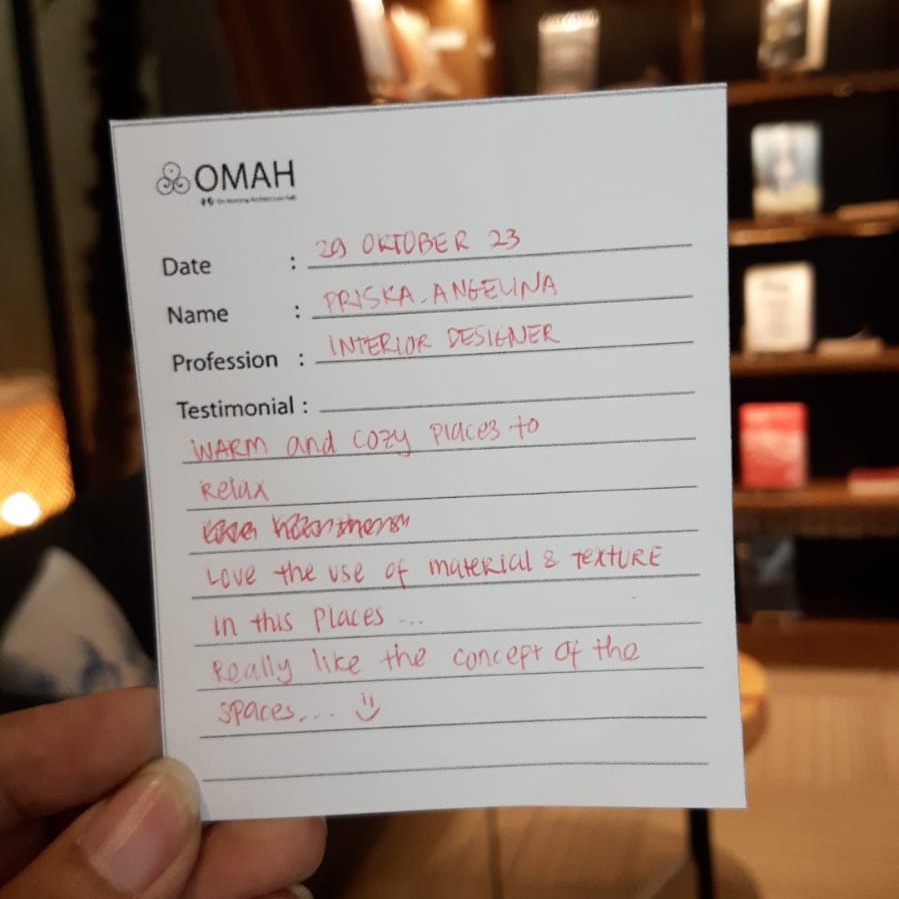 OMAH
Date : 29 OKTOBER 23
Name : PRISKA ANGELINA
Profession : INTERIOR DESIGNER
Testimonial :
WARM and cozy places to
Relax
Love the use of material & TEXTURE
in this places ...
Really like the concept of the
spaces....